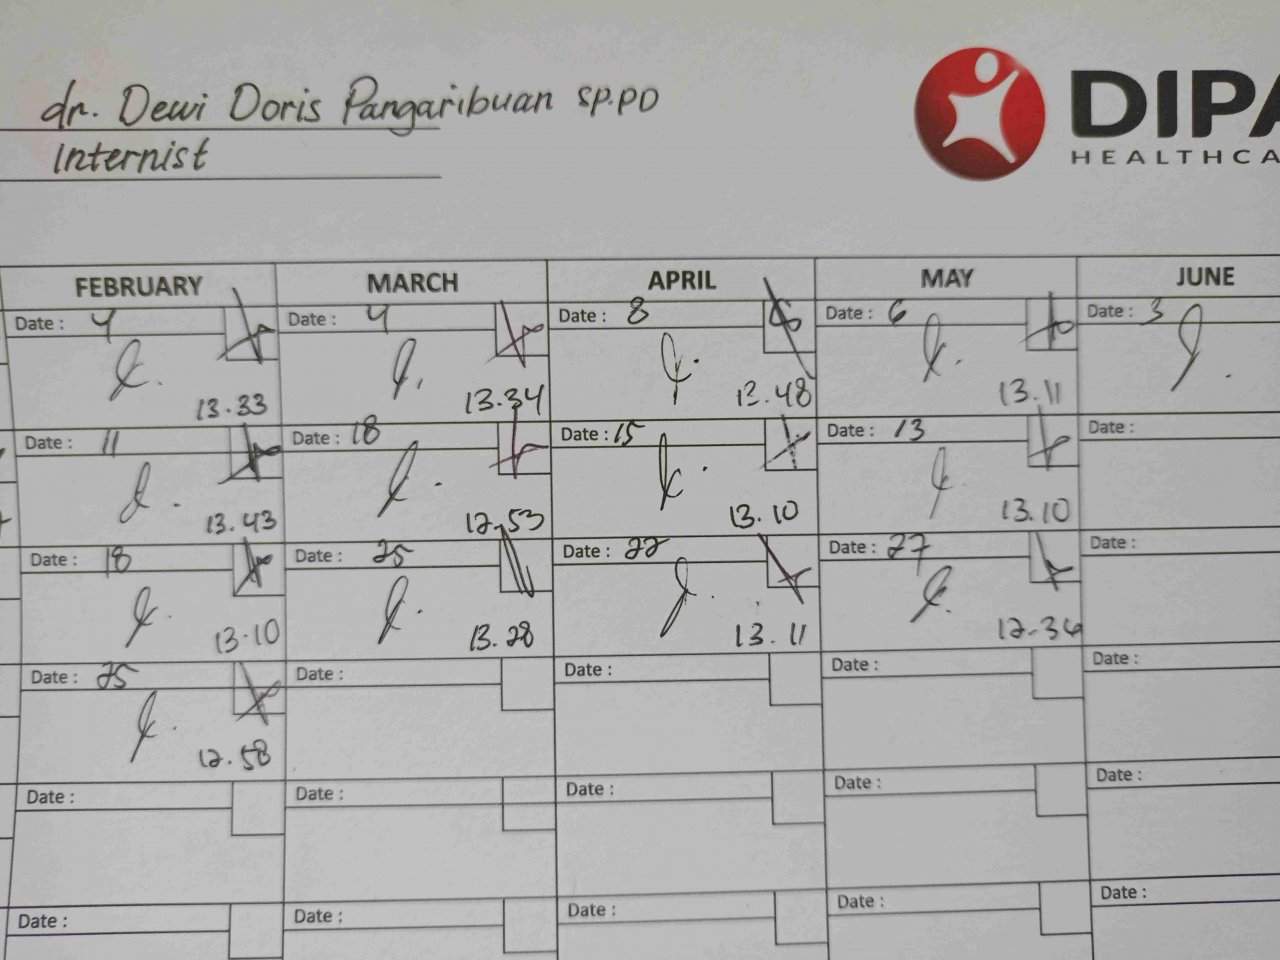 dr. Dewi Doris Pangaribuan SP.PD
Internist
DIPA
HEALTHCA
FEBRUARY MARCH APRIL MAY JUNE
Date: 4 Date: 4 Date: 8 Date: 6 Date: 3
13.33 13.34 13.48 13.11
Date: 11 Date: 18 Date: 15 Date: 13 Date:
13.43 12.53 13.10 13.10
Date: 18 Date: 25 Date: 22 Date: 27 Date:
13.10 13.28 13.11 12.34
Date: 25 Date: Date: Date: Date:
12.58
Date: Date: Date: Date: Date:
Date: Date: Date: Date: Date: